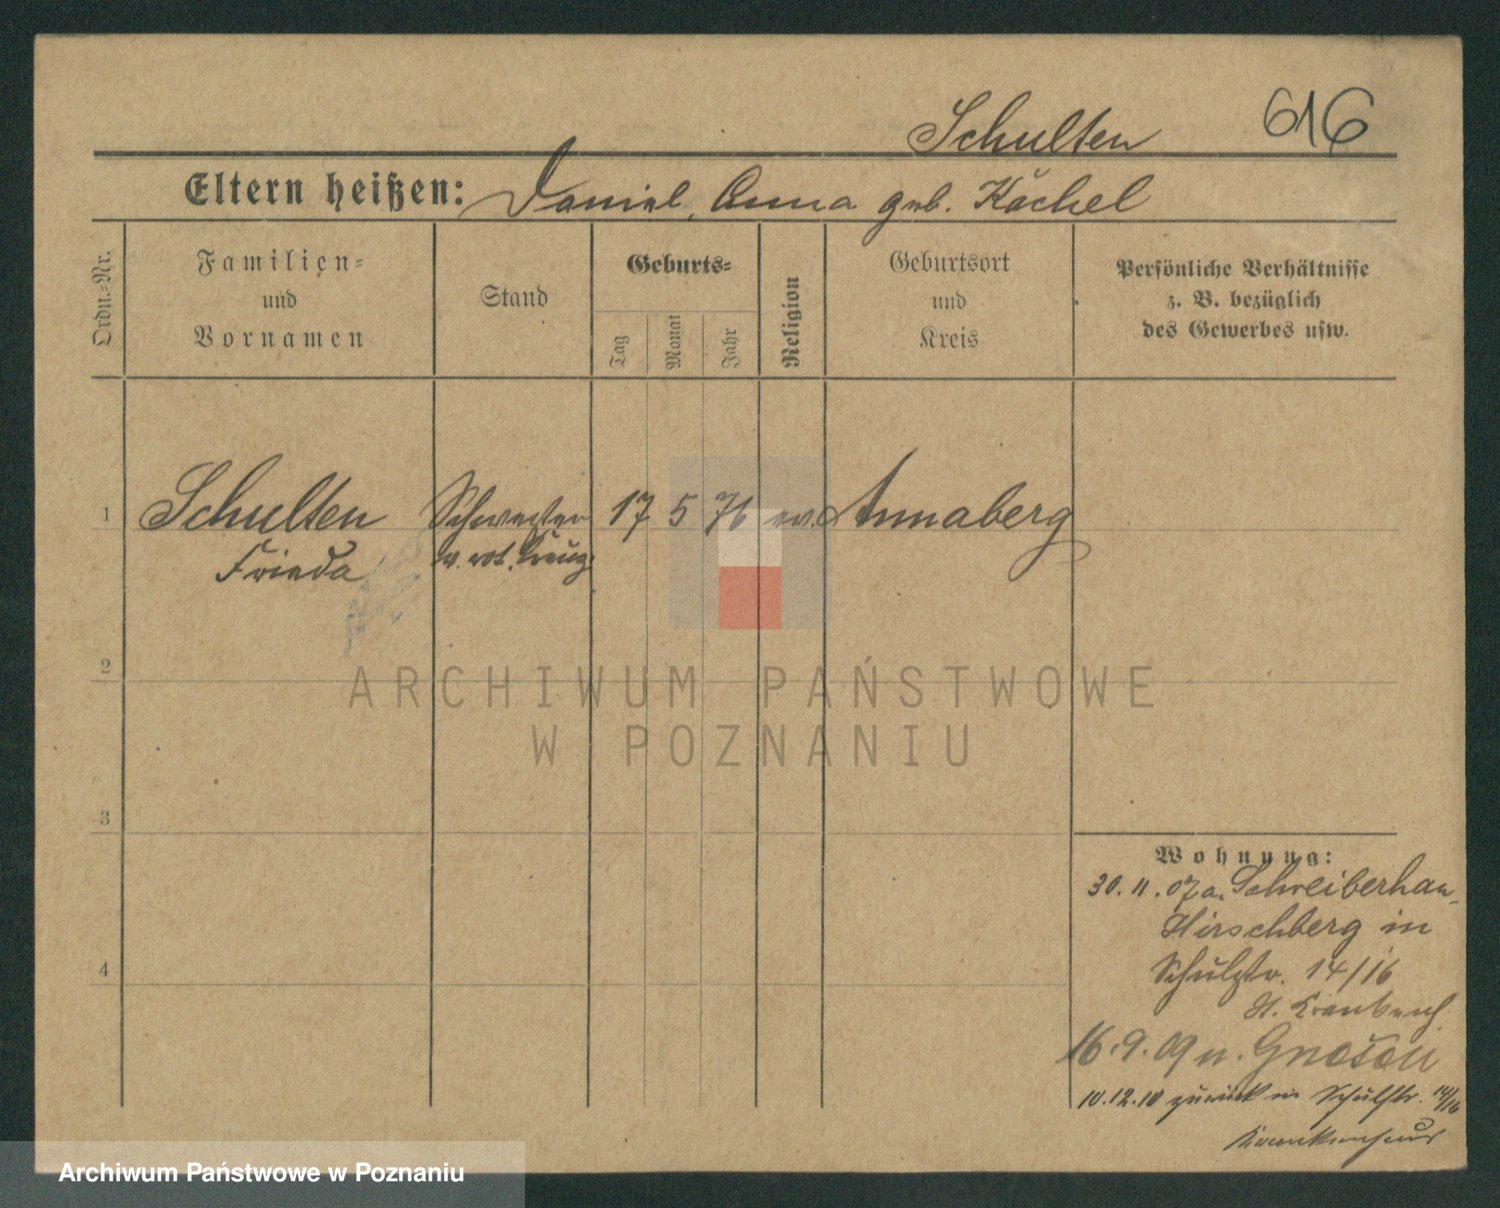 Schulten 616
Eltern heißen: Daniel, Anna geb. Kächel
Ordn.-Nr.
Familien-
und
Vornamen
Stand
Geburts-
Tag
Monat
Jahr
Religion
Geburtsort
und
Kreis
Persönliche Verhältnisse
z. B. bezüglich
des Gewerbes usw.
1 Schulten Schwester 17 5 76 ev. Annaberg
Frieda v. rot. Kreuz
2
3
4
Wohnung:
30.11.07 a. Schreiberhau
Hirschberg in
Schulstr. 14/16
16.9.09 n. Gnesen
10.12.10 zurück in Schulstr. 14/16
Krankenhaus
ARCHIWUM PAŃSTWOWE
W POZNANIU
Archiwum Państwowe w Poznaniu